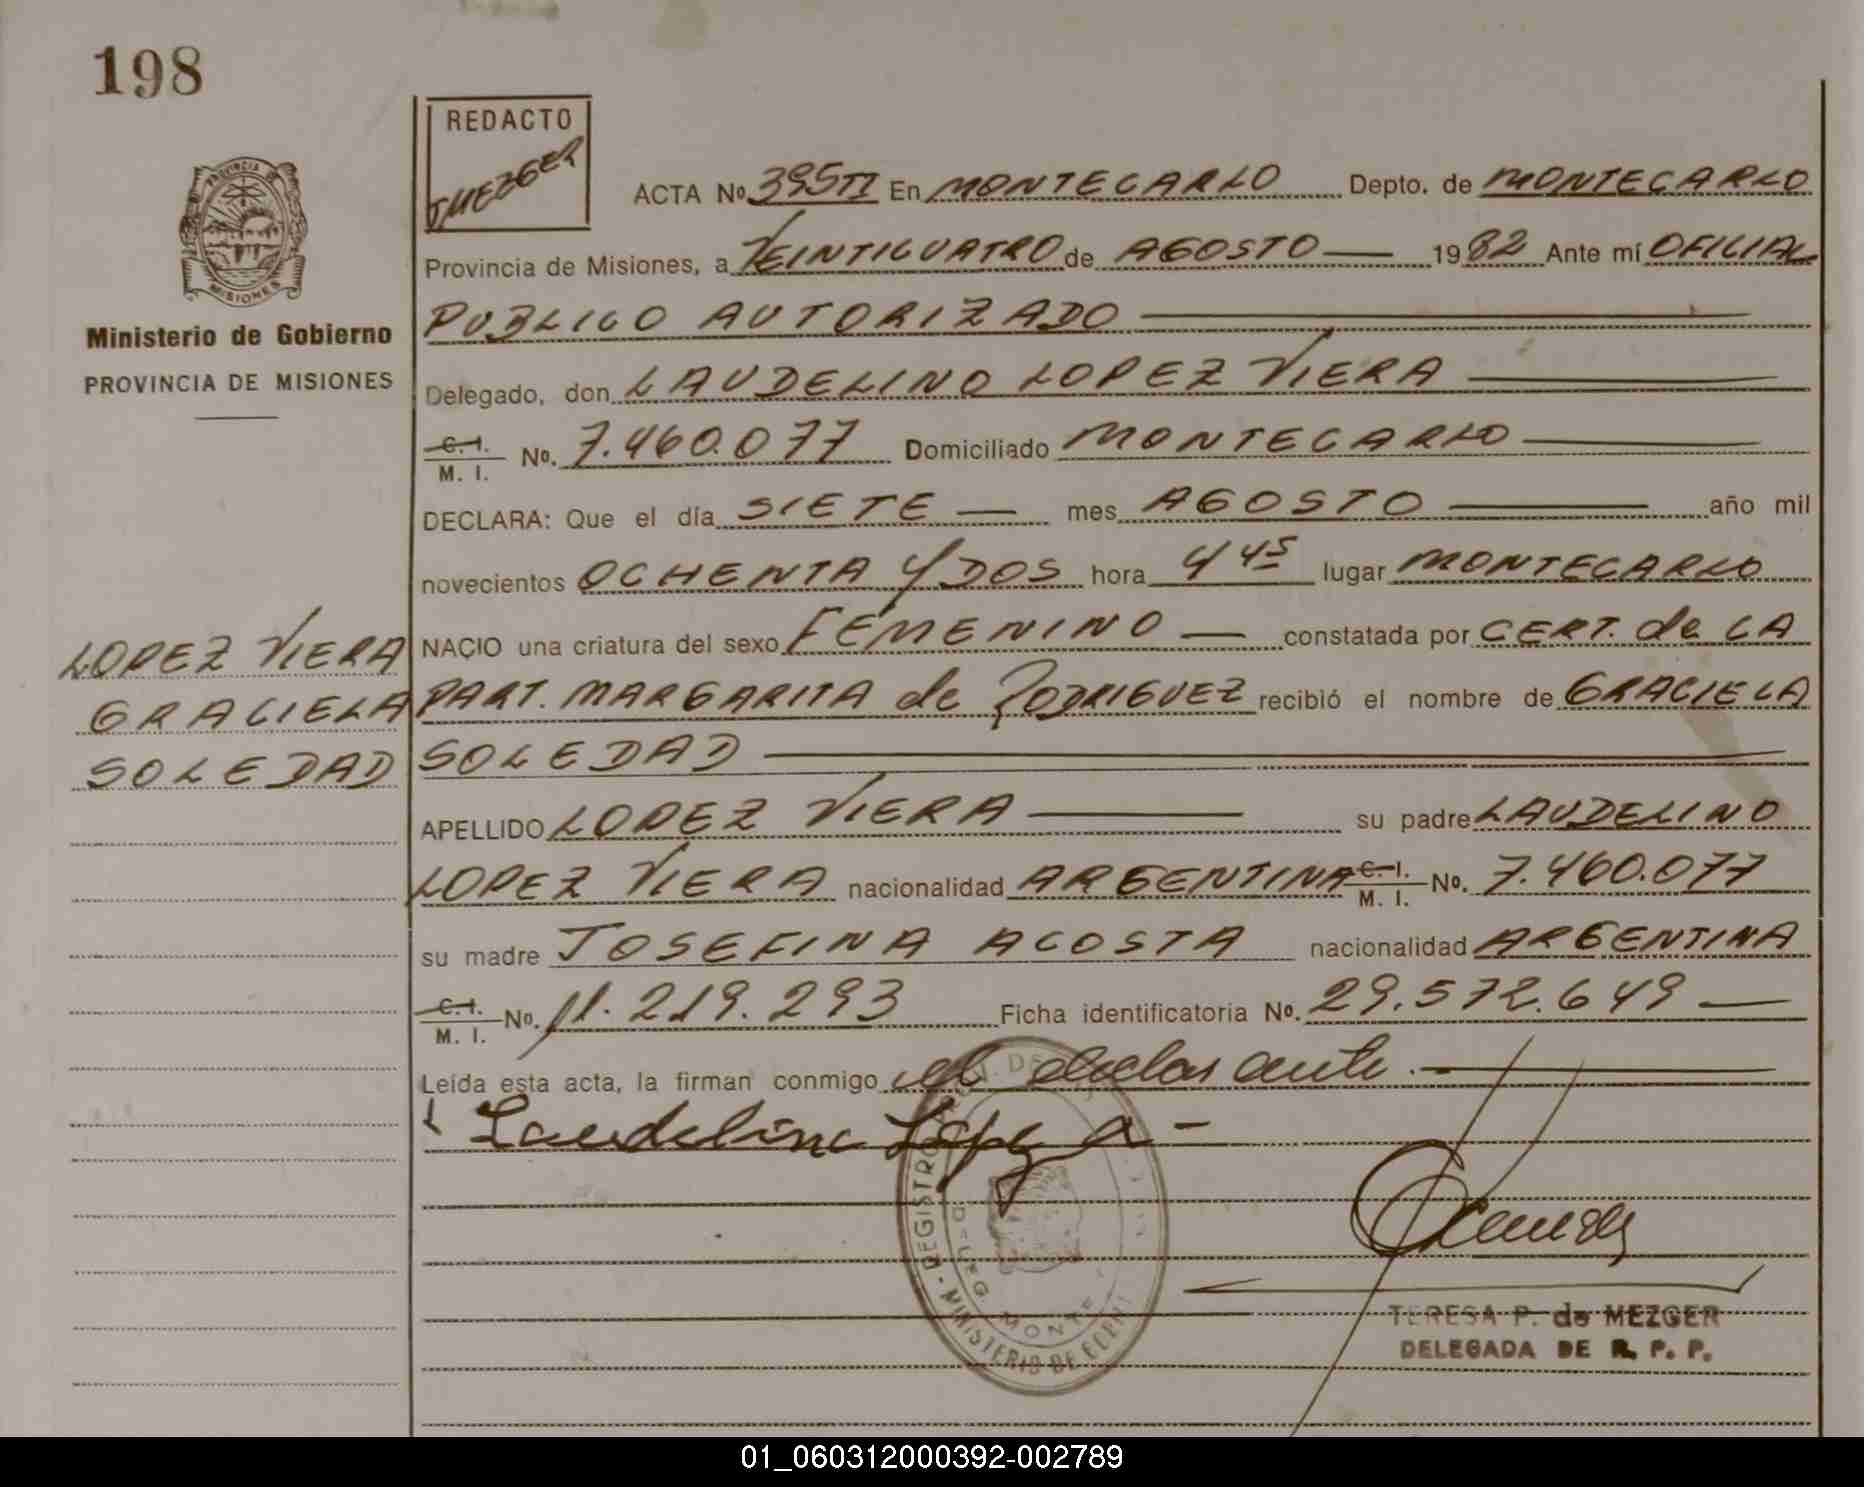 198
REDACTO
T.MEZGER
PROVINCIA DE
MISIONES
Ministerio de Gobierno
PROVINCIA DE MISIONES
ACTA Nº 395TI En MONTECARLO Depto. de MONTECARLO
Provincia de Misiones, a VEINTICUATRO de AGOSTO — 1982 Ante mí OFICIAL
PUBLICO AUTORIZADO —
Delegado, don LAUDELINO LOPEZ VIERA —
C. I. / M. I. Nº. 7.460.077 Domiciliado MONTECARLO —
DECLARA: Que el día SIETE — mes AGOSTO — año mil
novecientos OCHENTA Y DOS hora 4 45 lugar MONTECARLO
NACIO una criatura del sexo FEMENINO — constatada por CERT. de LA
PART. MARGARITA de RODRIGUEZ recibió el nombre de GRACIELA
SOLEDAD —
LOPEZ VIERA
GRACIELA
SOLEDAD
APELLIDO LOPEZ VIERA — su padre LAUDELINO
LOPEZ VIERA nacionalidad ARGENTINA C. I. / M. I. Nº. 7.460.077
su madre JOSEFINA ACOSTA nacionalidad ARGENTINA
C. I. / M. I. Nº. 11.219.293 Ficha identificatoria Nº. 29.572.649 —
Leída esta acta, la firman conmigo el declarante. —
Laudelino Lopez
REGISTRO
MINISTERIO DE
MONTE
TERESA P. de MEZGER
DELEGADA DE R. P. P.
01_060312000392-002789